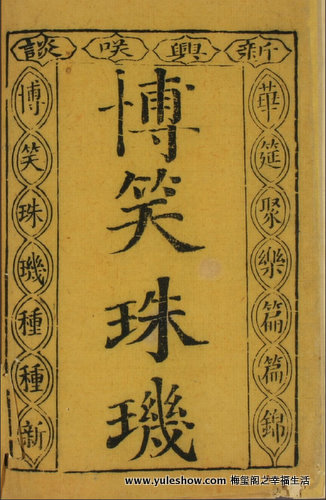 新興咲談
華筵聚樂篇篇錦
博笑珠璣
博笑珠璣種種新
www.yuleshow.com 梅玺阁之幸福生活